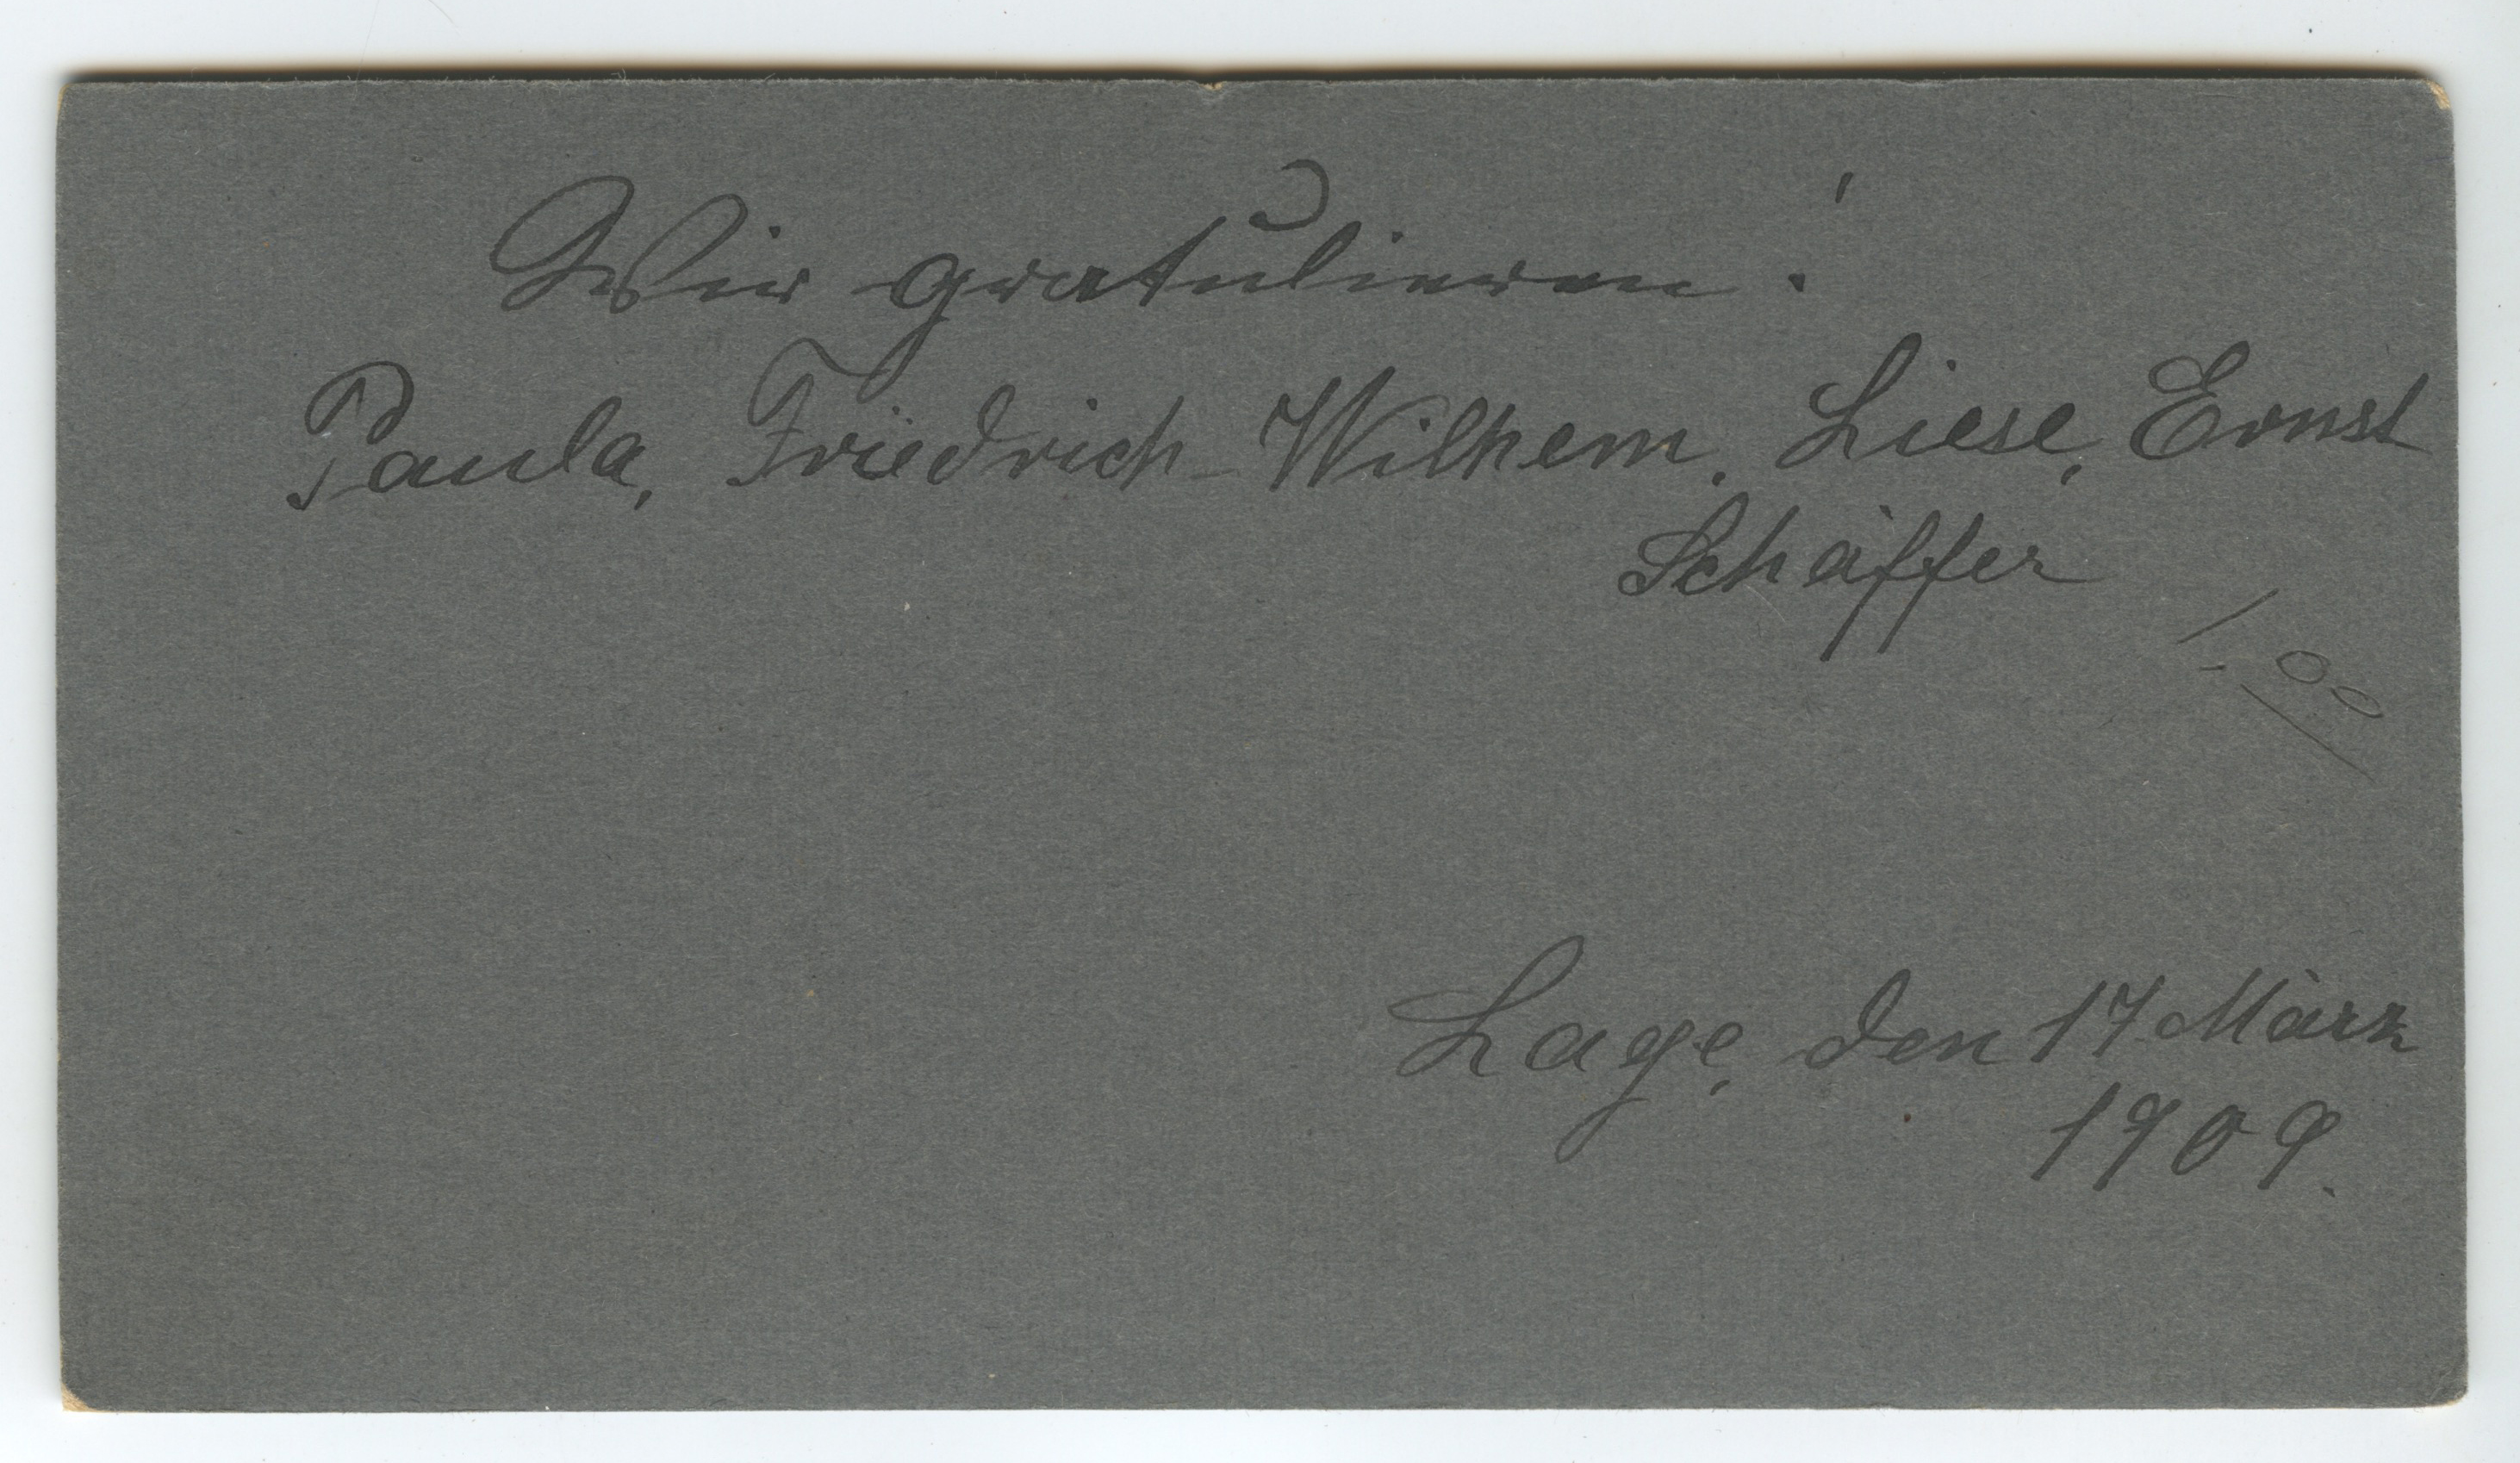 Wir gratulieren!
Paula, Friedrich-Wilhem, Liese, Ernst
Schäffer
1.00
Lage, den 17 März
1909.